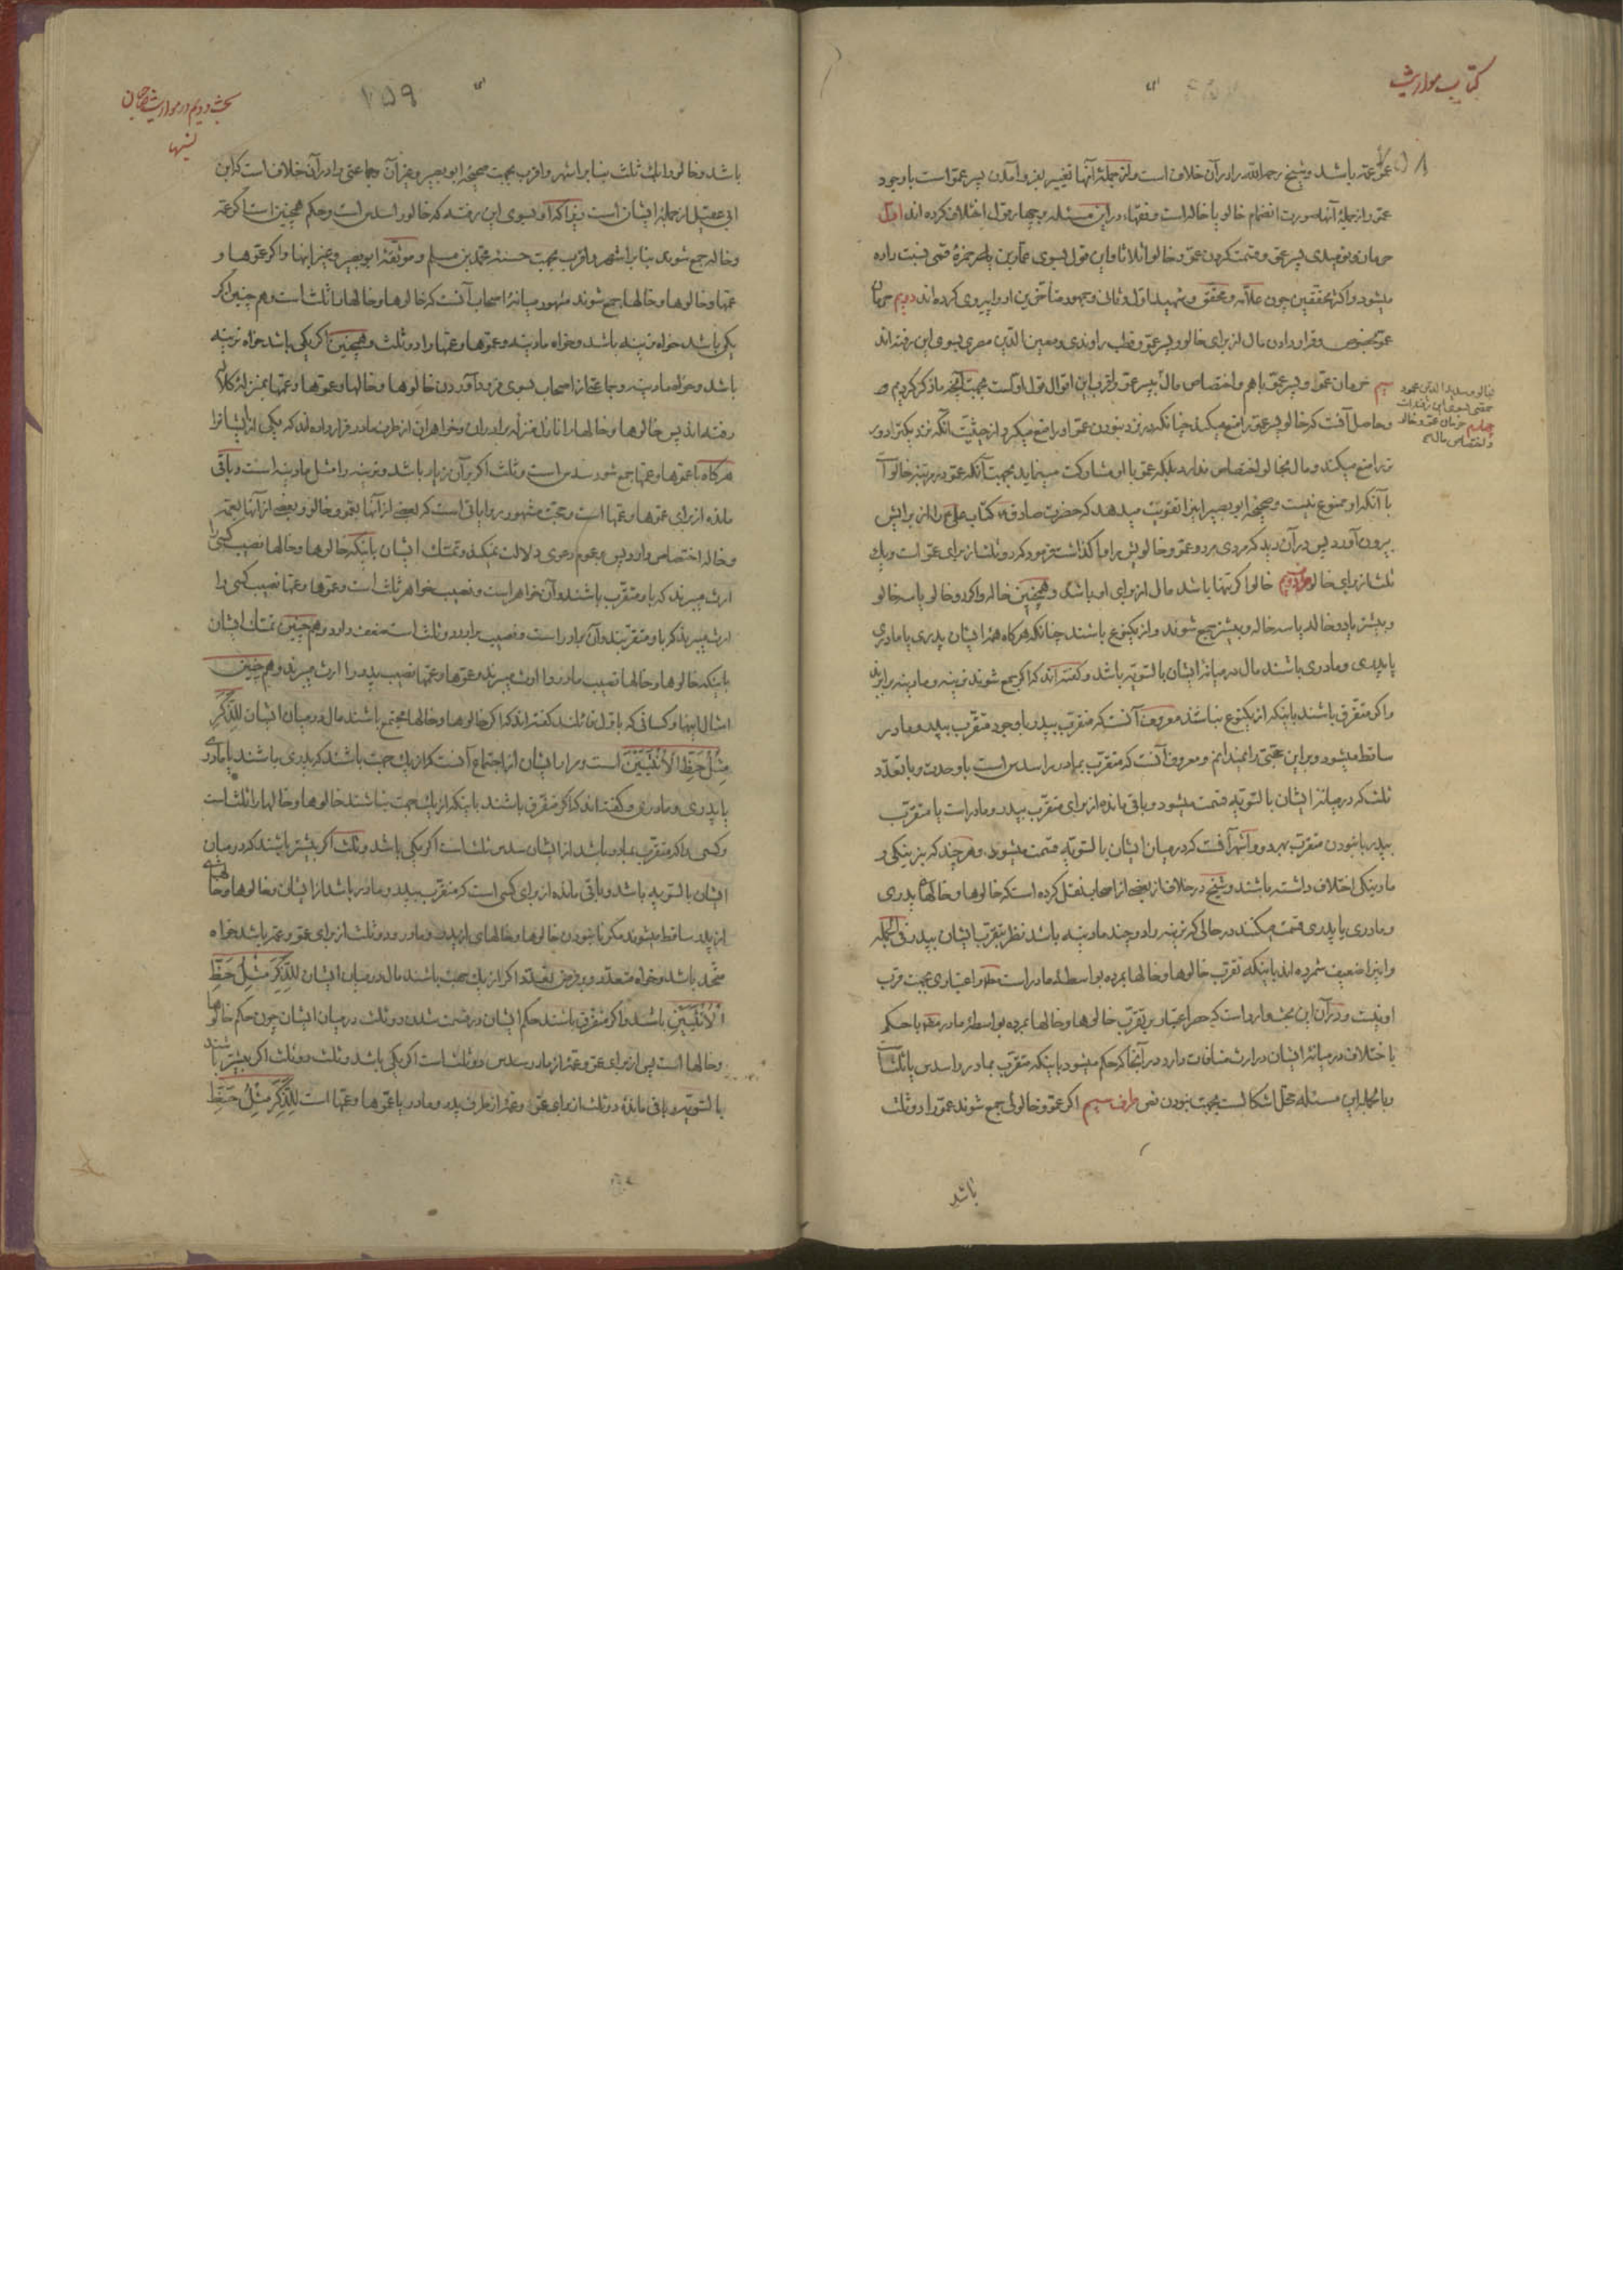 کتاب مواریث
۷۵۸
عمّ و عمّه باشد و شیخ رحمه الله را در آن خلاف است و از جملهٔ آنها تغییر پذیر و آمدن پسر عمّ است با وجود
عمّ و از جملهٔ آنها صورت انضمام خالو یا خاله است و فقهاء در این مسئله بچهار قول اختلاف کرده اند اوّل
حرمان پسر عمّ و قسمت کردن عمّ و خالو اثلاثا و این قول بسوی عمادین حمزهٔ قمی نسبت داده
میشود و اکثر محققین چون علاّمه و محقق و شهید اوّل و ثانی و جمهور متأخّرین او را پیروی کرده‌اند دویم حرمان
عمّ بخصوص و قرار دادن مال از برای خالو و پسر عمّ و قطب راوندی و معین الدّین مصری بسوی این رفته اند
سیم حرمان عمّ و پسر عمّ با هم و اختصاص مال بپسر عمّ و اقرب این اقوال قول اوّلست بجهت آنچه ما ذکر کردیم
چهارم حرمان عمّ و خاله و اختصاص مال
و حاصل آنست که خالو پسر عمّ را منع میکند چنانکه در نزد نبودن عمّ او را منع میکرد از حیثیّت آنکه نزدیکتر دورتر
را منع میکند و مال بخالو اختصاص ندارد بلکه عمّ با او مشارکت مینماید بجهت آنکه عمّ در مرتبهٔ خالو است
با آنکه او ممنوع نیست و صحیحهٔ ابو بصیر اینرا تقویت میدهد که حضرت صادق کتاب علی را از برایش
بیرون آورد پس در آن دید که مردی مرد و عمّ و خالویش را واگذاشت فرمود که دو ثلث از برای عمّ است و یک
ثلث از برای خالو دویم خالو اگر تنها باشد مال از برای او باشد و همچنین خاله و اگر دو خالو یا سه خالو
و بیشتر یا دو خاله یا سه خاله و بیشتر جمع شوند و از یکنوع باشند چنانکه هرگاه همهٔ ایشان پدری یا مادری
یا پدری و مادری باشند مال در میانهٔ ایشان بالسّویّه باشد و گفته اند که اگر جمع شوند نرینه و مادینه برابرند
و اگر متفرّق باشند باینکه از یکنوع نباشند معروف آنست که متقرّب بپدر با وجود متقرّب بپدر و مادر
ساقط میشود و بر این حجّتی را نمیدانم و معروف آنست که متقرّب بمادر را سدس است با وحدت و با تعدّد
ثلث که در میانهٔ ایشان بالسّویّه قسمت میشود و باقی مانده از برای متقرّب بپدر و مادر است یا متقرّب
بپدر با نبودن متقرّب بهر دو و اشهر آنست که در میان ایشان بالسّویّه قسمت میشود و هر چند که بنرینگی و
مادینگی اختلاف داشته باشند و شیخ در خلاف از بعضی از اصحاب نقل کرده است که خالوها و خالهای پدری
و مادری یا پدری قسمت میکنند در حالی که نرینه را دو چند مادینه باشد نظر بتقرّب ایشان بپدر فی الجمله
و اینرا ضعیف شمرده اند باینکه تقرّب خالوها و خالها بمرده بواسطهٔ مادر است و اعتباری بجهت قرب
او نیست و در آن این بحث وارد است که حصر اعتبار بر تقرّب خالوها و خالها بمرده بواسطهٔ مادر با حکم
باختلاف در میانهٔ ایشان در ارث منافات دارد در آنجا که حکم میشود باینکه متقرّب بمادر را سدس یا ثلث است
و بالجمله این مسئله محلّ اشکالست بجهت نبودن نصّ طرف سیم اگر عمّ و خالوئی جمع شوند عمّ را دو ثلث
باشد
بحث دویم در مواریث صاحبان نسبها
۷۵۹
باشد و خالو را ثلث بنا بر اشهر و اقرب بجهت صحیحهٔ ابو بصیر و غیر آن و جماعتی را در آن خلاف است که ابن
ابی عقیل از جملهٔ ایشان است بسوی این رفته که خالو را سدس است و حکم همچنین است اگر عمّه
و خاله جمع شوند بنا بر اشهر و اقرب بجهت حسنهٔ محمّد بن مسلم و موثّقهٔ ابو بصیر و غیر اینها و اگر عمّوها و
عمّها و خالوها و خالها جمع شوند مشهور میانهٔ اصحاب آنست که خالوها و خالها را ثلث است و هم چنین اگر
یکی باشد خواه نرینه باشد و خواه مادینه و عموها و عمّها را دو ثلث و همچنین اگر یکی باشد خواه نرینه
باشد و خواه مادینه و جماعتی از اصحاب بسوی فرود آوردن خالوها و خالها و عموها و عمّها بمنزلهٔ کلاله
رفته اند پس خالوها و خالها را نازل منزلهٔ برادران و خواهران از طرف مادر قرار داده اند که یکی از ایشانرا
هرگاه با عموها و عمّها جمع شود سدس است و ثلث اگر بر آن زیاد باشد و نرینه را مثل مادینه است و باقی
مانده از برای عموها و عمّها است و حجّت مشهور روایاتی است که بعضی از آنها بعمّ و خالو و بعضی از آنها بعمّه
و خاله اختصاص دارد پس بر عموم دعوی دلالت نمیکند و تمسّک ایشان باینکه خالوها و خالها نصیب کسی را
ارث میبرند که باو متقرّب باشند و آن خواهر است و نصیب خواهر ثلث است و عموها و عمّها نصیب کسی را
ارث میبرند که باو متقرّبند و آن برادر است و نصیب برادر دو ثلث است ضعف دارد و هم چنین تمسّک ایشان
باینکه خالوها و خالها نصیب مادر را ارث میبرند و عموها و عمّها نصیب پدر را ارث میبرند و هم چنین
امثال اینها و کسانی که باوّل قائلند گفته اند که اگر خالوها و خالها مجتمع باشند مال در میان ایشان لِلذَّکَرِ
مِثْلُ حَظِّ الْأُنْثَیَیْنِ است و مراد ایشان از اجتماع آنست که از یک جهت باشند که پدری باشند یا مادری
یا پدری و مادری و گفته اند که اگر متفرّق باشند باینکه از یک جهت نباشند خالوها و خالها را ثلث است
و کسی را که متقرّب بمادر باشد از ایشان سدس ثلث است اگر یکی باشد و ثلث اگر بیشتر باشند که در میان
ایشان بالسّویّه باشد و باقی مانده از برای کسی است که متقرّب بپدر و مادر باشد از ایشان و خالوها و خالهای
از پدر ساقط میشوند مگر با نبودن خالوها و خالهای از پدر و مادر و دو ثلث از برای عمّ و عمّه باشد خواه
متّحد باشد و خواه متعدّد و بر فرض تعدّد اگر از یک جهت باشند مال در میان ایشان لِلذَّکَرِ مِثْلُ حَظِّ
الْأُنْثَیَیْنِ باشد و اگر متفرّق باشند حکم ایشان در قسمت شدن دو ثلث در میان ایشان چون حکم خالوها
و خالها است پس از برای عمّ و عمّهٔ از مادر سدس دو ثلث است اگر یکی باشد و ثلث دو ثلث اگر بیشتر باشند
بالسّویّه و باقی ماندهٔ دو ثلث از برای عمّ و عمّه از طرف پدر و مادر یا عموها و عمّها است لِلذَّکَرِ مِثْلُ حَظِّ